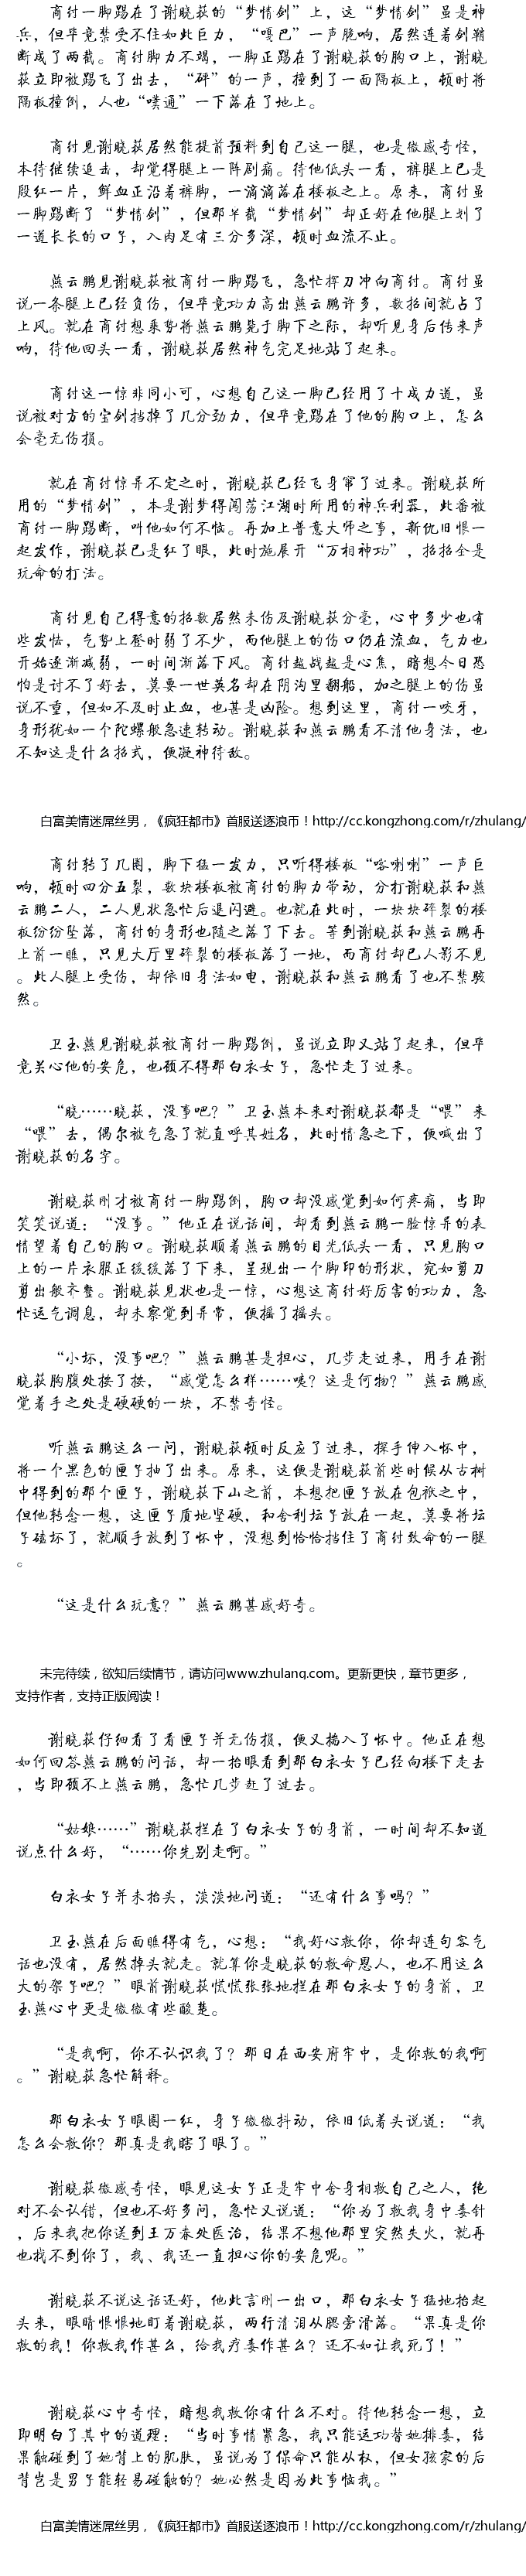 商付一脚踢在了谢晓荻的“梦情剑”上，这“梦情剑”虽是神
兵，但毕竟禁受不住如此巨力，“嘎巴”一声脆响，居然连着剑鞘
断成了两截。商付脚力不竭，一脚正踢在了谢晓荻的胸口上，谢晓
荻立即被踢飞了出去，“砰”的一声，撞到了一面隔板上，顿时将
隔板撞倒，人也“噗通”一下落在了地上。
商付见谢晓荻居然能提前预料到自己这一腿，也是微感奇怪，
本待继续追击，却觉得腿上一阵剧痛。待他低头一看，裤腿上已是
殷红一片，鲜血正沿着裤脚，一滴滴落在楼板之上。原来，商付虽
一脚踢断了“梦情剑”，但那半截“梦情剑”却正好在他腿上划了
一道长长的口子，入肉足有三分多深，顿时血流不止。
燕云鹏见谢晓荻被商付一脚踢飞，急忙挥刀冲向商付。商付虽
说一条腿上已经负伤，但毕竟功力高出燕云鹏许多，数招间就占了
上风。就在商付想乘势将燕云鹏毙于脚下之际，却听见身后传来声
响，待他回头一看，谢晓荻居然神气完足地站了起来。
商付这一惊非同小可，心想自己这一脚已经用了十成力道，虽
说被对方的宝剑挡掉了几分劲力，但毕竟踢在了他的胸口上，怎么
会毫无伤损。
就在商付惊异不定之时，谢晓荻已经飞身窜了过来。谢晓荻所
用的“梦情剑”，本是谢梦得闯荡江湖时所用的神兵利器，此番被
商付一脚踢断，叫他如何不恼。再加上普意大师之事，新仇旧恨一
起发作，谢晓荻已是红了眼，此时施展开“万相神功”，招招全是
玩命的打法。
商付见自己得意的招数居然未伤及谢晓荻分毫，心中多少也有
些发怯，气势上登时弱了不少，而他腿上的伤口仍在流血，气力也
开始逐渐减弱，一时间渐落下风。商付越战越是心焦，暗想今日恐
怕是讨不了好去，莫要一世英名却在阴沟里翻船，加之腿上的伤虽
说不重，但如不及时止血，也甚是凶险。想到这里，商付一咬牙，
身形犹如一个陀螺般急速转动。谢晓荻和燕云鹏看不清他身法，也
不知这是什么招式，便凝神待敌。
白富美情迷屌丝男，《疯狂都市》首服送逐浪币！http://cc.kongzhong.com/r/zhulang/
商付转了几圈，脚下猛一发力，只听得楼板“喀喇喇”一声巨
响，顿时四分五裂，数块楼板被商付的脚力带动，分打谢晓荻和燕
云鹏二人，二人见状急忙后退闪避。也就在此时，一块块碎裂的楼
板纷纷坠落，商付的身形也随之落了下去。等到谢晓荻和燕云鹏再
上前一瞧，只见大厅里碎裂的楼板落了一地，而商付却已人影不见
。此人腿上受伤，却依旧身法如电，谢晓荻和燕云鹏看了也不禁骇
然。
卫玉燕见谢晓荻被商付一脚踢倒，虽说立即又站了起来，但毕
竟关心他的安危，也顾不得那白衣女子，急忙走了过来。
“晓……晓荻，没事吧？”卫玉燕本来对谢晓荻都是“喂”来
“喂”去，偶尔被气急了就直呼其姓名，此时情急之下，便喊出了
谢晓荻的名字。
谢晓荻刚才被商付一脚踢倒，胸口却没感觉到如何疼痛，当即
笑笑说道：“没事。”他正在说话间，却看到燕云鹏一脸惊异的表
情望着自己的胸口。谢晓荻顺着燕云鹏的目光低头一看，只见胸口
上的一片衣服正缓缓落了下来，呈现出一个脚印的形状，宛如剪刀
剪出般齐整。谢晓荻见状也是一惊，心想这商付好厉害的功力，急
忙运气调息，却未察觉到异常，便摇了摇头。
“小坏，没事吧？”燕云鹏甚是担心，几步走过来，用手在谢
晓荻胸腹处按了按，“感觉怎么样……咦？这是何物？”燕云鹏感
觉着手之处是硬硬的一块，不禁奇怪。
听燕云鹏这么一问，谢晓荻顿时反应了过来，探手伸入怀中，
将一个黑色的匣子抽了出来。原来，这便是谢晓荻前些时候从古树
中得到的那个匣子，谢晓荻下山之前，本想把匣子放在包袱之中，
但他转念一想，这匣子质地坚硬，和舍利坛子放在一起，莫要将坛
子磕坏了，就顺手放到了怀中，没想到恰恰挡住了商付致命的一腿
。
“这是什么玩意？”燕云鹏甚感好奇。
未完待续，欲知后续情节，请访问www.zhulang.com。更新更快，章节更多，
支持作者，支持正版阅读！
谢晓荻仔细看了看匣子并无伤损，便又揣入了怀中。他正在想
如何回答燕云鹏的问话，却一抬眼看到那白衣女子已经向楼下走去
，当即顾不上燕云鹏，急忙几步赶了过去。
“姑娘……”谢晓荻拦在了白衣女子的身前，一时间却不知道
说点什么好，“……你先别走啊。”
白衣女子并未抬头，淡淡地问道：“还有什么事吗？”
卫玉燕在后面瞧得有气，心想：“我好心救你，你却连句客气
话也没有，居然掉头就走。就算你是晓荻的救命恩人，也不用这么
大的架子吧？”眼前谢晓荻慌慌张张地拦在那白衣女子的身前，卫
玉燕心中更是微微有些酸楚。
“是我啊，你不认识我了？那日在西安府牢中，是你救的我啊
。”谢晓荻急忙解释。
那白衣女子眼圈一红，身子微微抖动，依旧低着头说道：“我
怎么会救你？那真是我瞎了眼了。”
谢晓荻微感奇怪，眼见这女子正是牢中舍身相救自己之人，绝
对不会认错，但也不好多问，急忙又说道：“你为了救我身中毒针
，后来我把你送到王万春处医治，结果不想他那里突然失火，就再
也找不到你了，我、我还一直担心你的安危呢。”
谢晓荻不说这话还好，他此言刚一出口，那白衣女子猛地抬起
头来，眼睛恨恨地盯着谢晓荻，两行清泪从腮旁滑落。“果真是你
救的我！你救我作甚么，给我疗毒作甚么？还不如让我死了！”
谢晓荻心中奇怪，暗想我救你有什么不对。待他转念一想，立
即明白了其中的道理：“当时事情紧急，我只能运功替她排毒，结
果触碰到了她背上的肌肤，虽说为了保命只能从权，但女孩家的后
背岂是男子能轻易碰触的？她必然是因为此事恼我。”
白富美情迷屌丝男，《疯狂都市》首服送逐浪币！http://cc.kongzhong.com/r/zhulang/